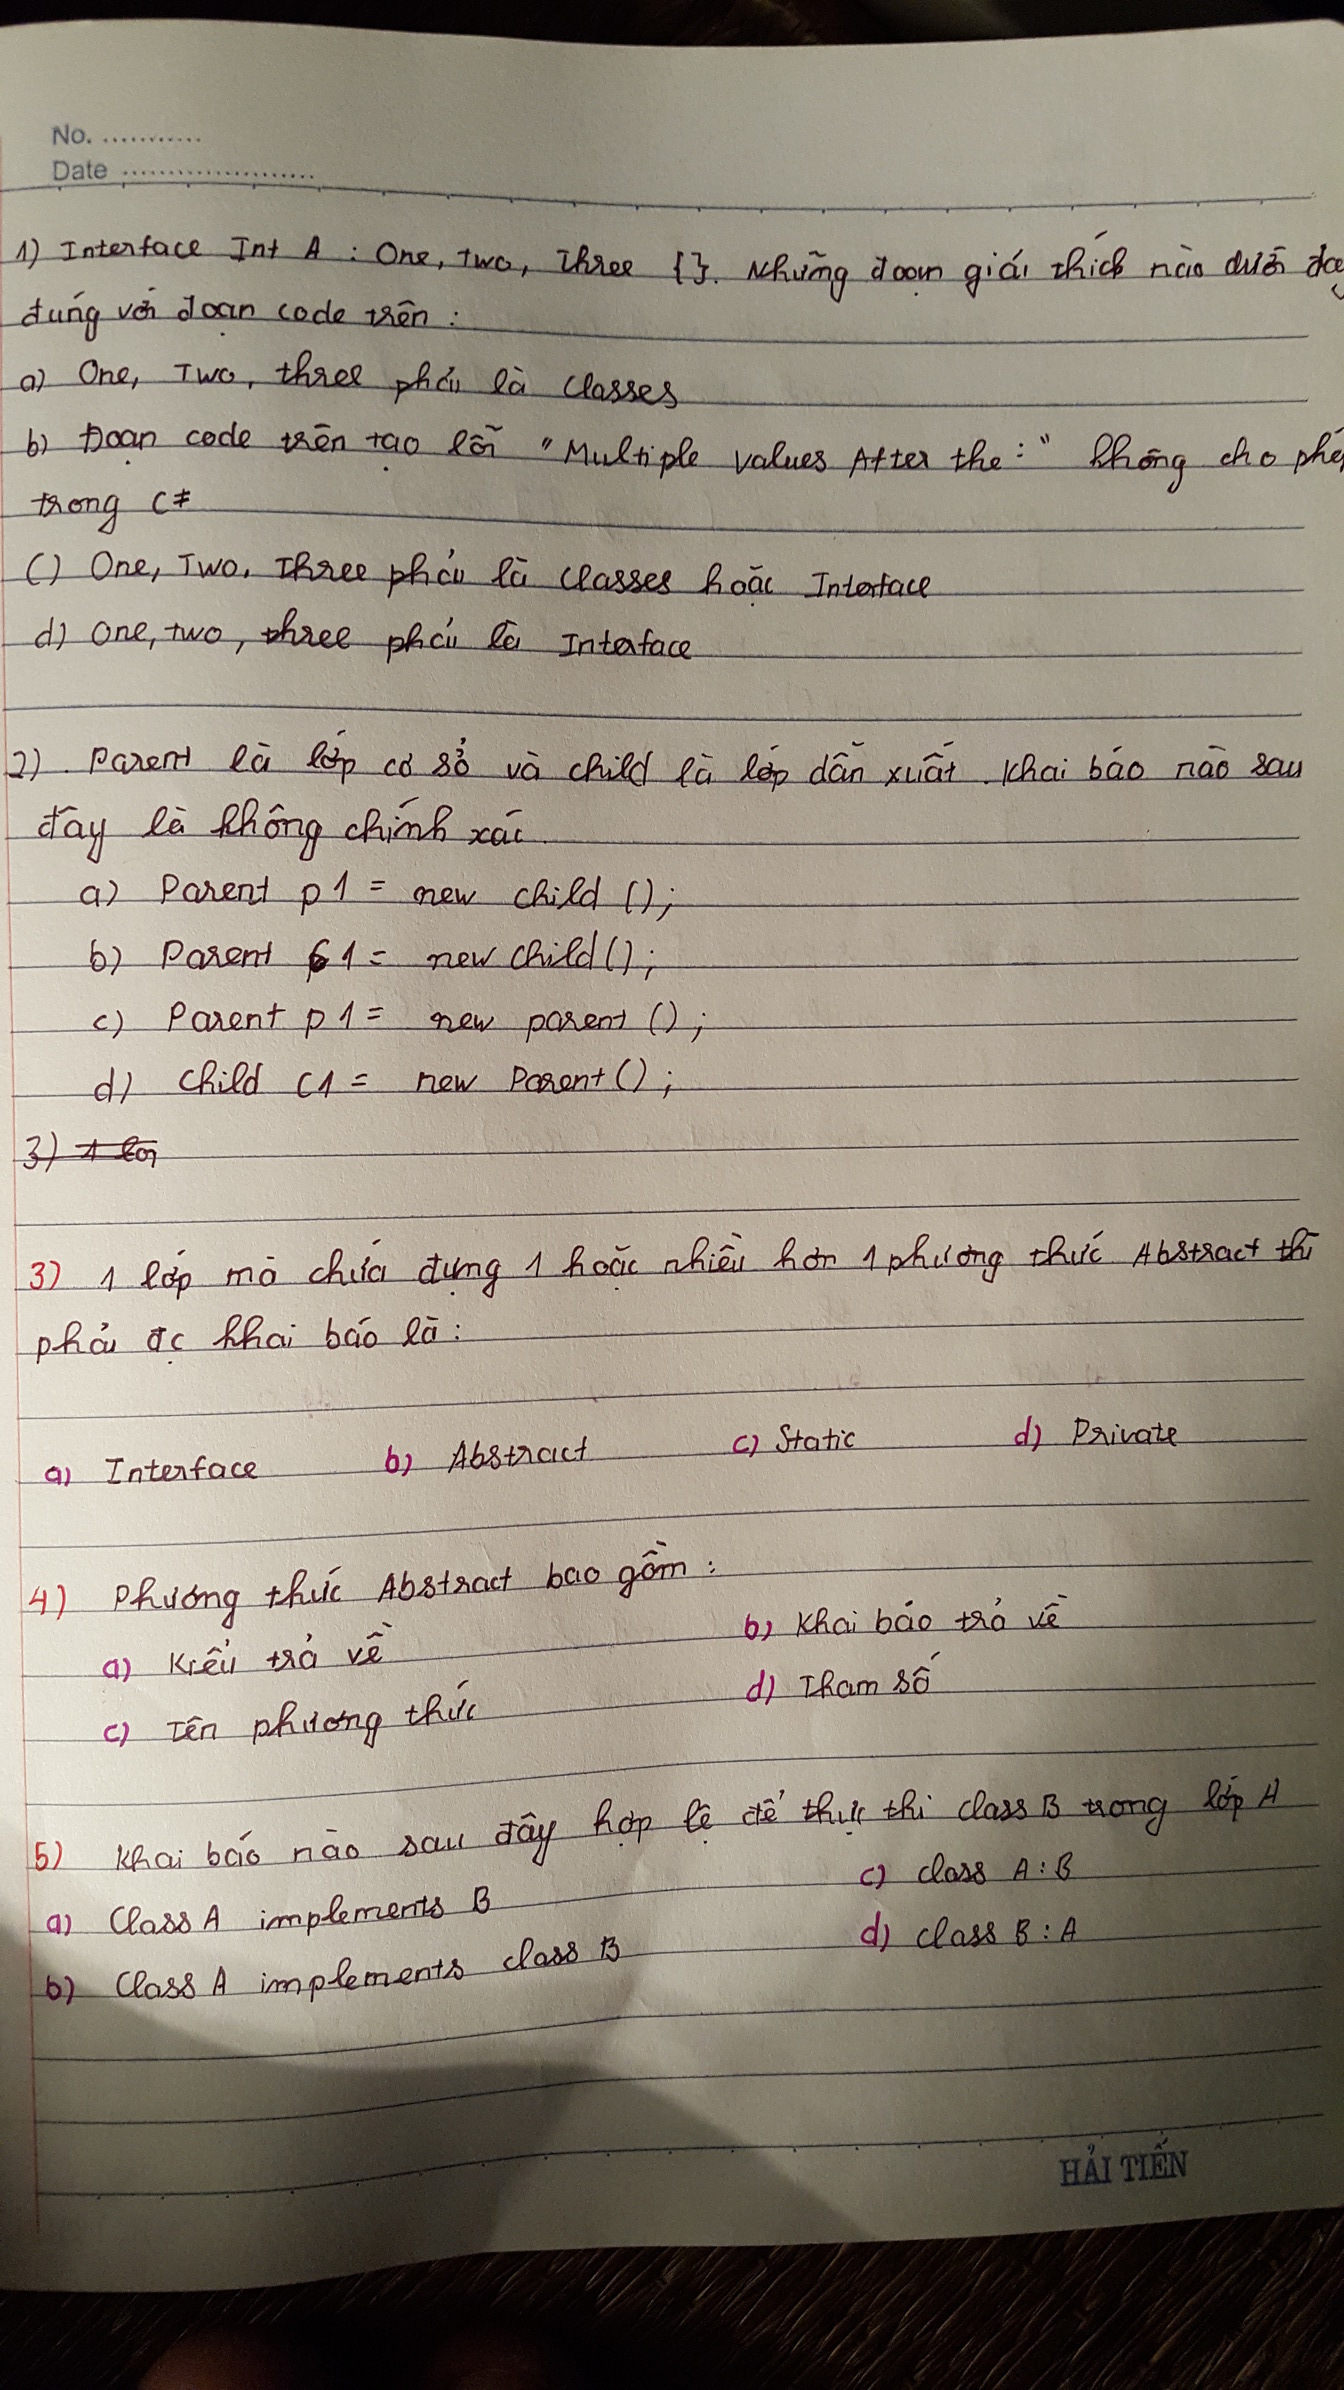 No. ............
Date ......................
1) Interface Int A : One, two, Three {}. Những đoạn giải thích nào dưới đây
đúng với đoạn code trên :
a) One, Two, three phải là classes
b) Đoạn code trên tạo lỗi "Multiple values After the :" không cho phé
trong C#
c) One, Two, Three phải là classes hoặc Interface
d) One, two, three phải là Interface
2) Parent là lớp cơ sở và child là lớp dẫn xuất. Khai báo nào sau
đây là không chính xác
a) Parent p1 = new child ();
b) Parent 1 = new child();
c) Parent p1 = new parent ();
d) child C1 = new Parent();
3)
3) 1 lớp mà chứa đựng 1 hoặc nhiều hơn 1 phương thức Abstract thì
phải đc khai báo là :
a) Interface b) Abstract c) Static d) Private
4) Phương thức Abstract bao gồm :
a) Kiểu trả về b) Khai báo trả về
c) Tên phương thức d) Tham số
5) Khai báo nào sau đây hợp lệ để thực thi class B trong lớp A
a) Class A implements B c) class A : B
b) Class A implements class B d) class B : A
HẢI TIẾN